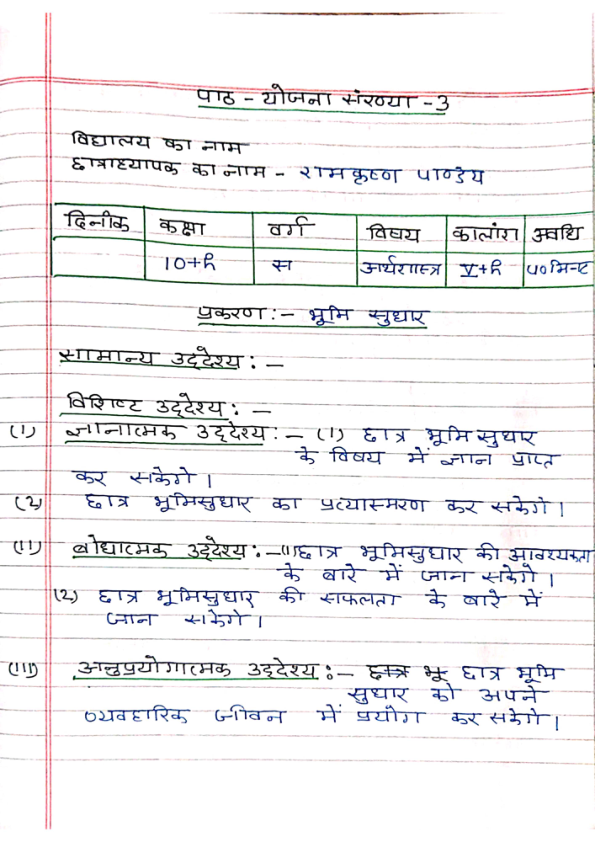 पाठ - योजना संख्या - 3
विद्यालय का नाम
छात्राध्यापक का नाम - रामकृष्ण पाण्डेय
दिनाँक कक्षा वर्ग विषय कालांश अवधि
10+h स अर्थशास्त्र V+h 40 मिनट
प्रकरण :- भूमि सुधार
सामान्य उद्देश्य : -
विशिष्ट उद्देश्य : -
(I) ज्ञानात्मक उद्देश्य : - (1) छात्र भूमि सुधार
के विषय में ज्ञान प्राप्त
कर सकेगे ।
(2) छात्र भूमिसुधार का प्रत्यास्मरण कर सकेगे ।
(II) बोधात्मक उद्देश्य :- (1) छात्र भूमिसुधार की आवश्यकता
के बारे में जान सकेगे ।
(2) छात्र भूमिसुधार की सफलता के बारे में
जान सकेगे ।
(III) अनुप्रयोगात्मक उद्देश्य :- छात्र भू छात्र भूमि
सुधार को अपने
व्यवहारिक जीवन में प्रयोग कर सकेगे ।